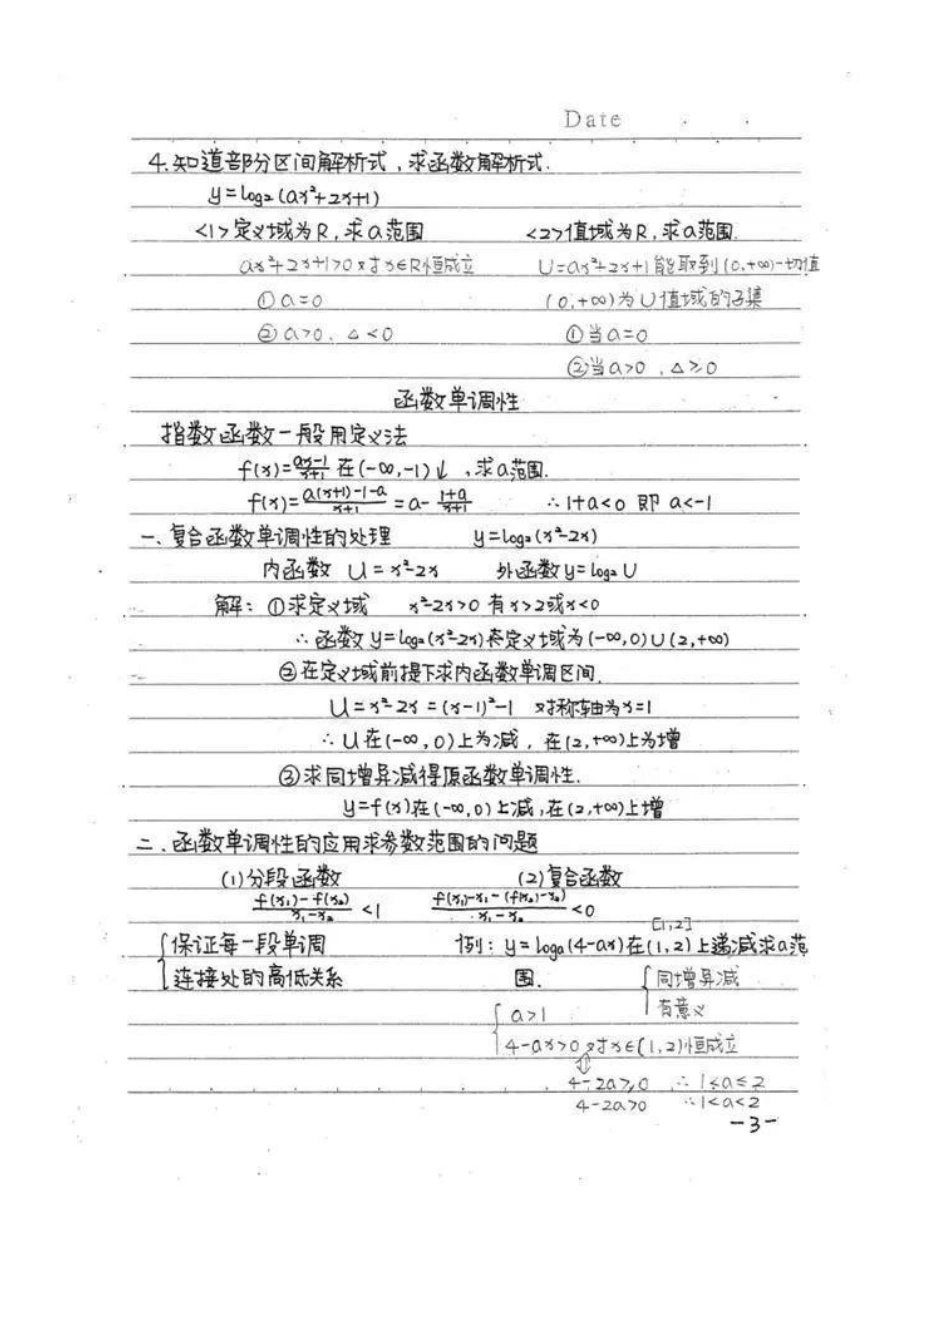 Date
4.知道部分区间解析式，求函数解析式.
y=log₂(ax²+2x+1)
<1>定义域为R,求a范围 <2>值域为R,求a范围.
ax²+2x+1>0对x∈R恒成立 U=ax²+2x+1能取到(0,+∞)一切值
①a=0 (0,+∞)为U值域的子集
②a>0, △<0 ①当a=0
②当a>0,△≥0
函数单调性
指数函数一般用定义法
f(x)=(ax-1)/(x+1) 在(-∞,-1)↓,求a范围.
f(x)=(a(x+1)-1-a)/(x+1)=a-(1+a)/(x+1) ∴1+a<0 即 a<-1
一、复合函数单调性的处理 y=log₂(x²-2x)
内函数 U=x²-2x 外函数y=log₂U
解：①求定义域 x²-2x>0 有x>2或x<0
∴函数y=log₂(x²-2x)定义域为(-∞,0)∪(2,+∞)
②在定义域前提下求内函数单调区间.
U=x²-2x=(x-1)²-1 对称轴为x=1
∴U在(-∞,0)上为减，在(2,+∞)上为增
③求同增异减得原函数单调性.
y=f(x)在(-∞,0)上减,在(2,+∞)上增
二.函数单调性的应用求参数范围的问题
(1)分段函数 (2)复合函数
(f(x₁)-f(x₂))/(x₁-x₂)<1 (f(x₁)-x₁-(f(x₂)-x₂))/(x₁-x₂)<0
[1,2]
{保证每一段单调 例：y=logₐ(4-ax)在(1,2)上递减求a范
连接处的高低关系 围. {同增异减
{a>1 有意义
4-ax>0对x∈(1,2)恒成立
⇕
4-2a≥0 ∴1<a≤2
4-2a>0 ∴1<a<2
-3-